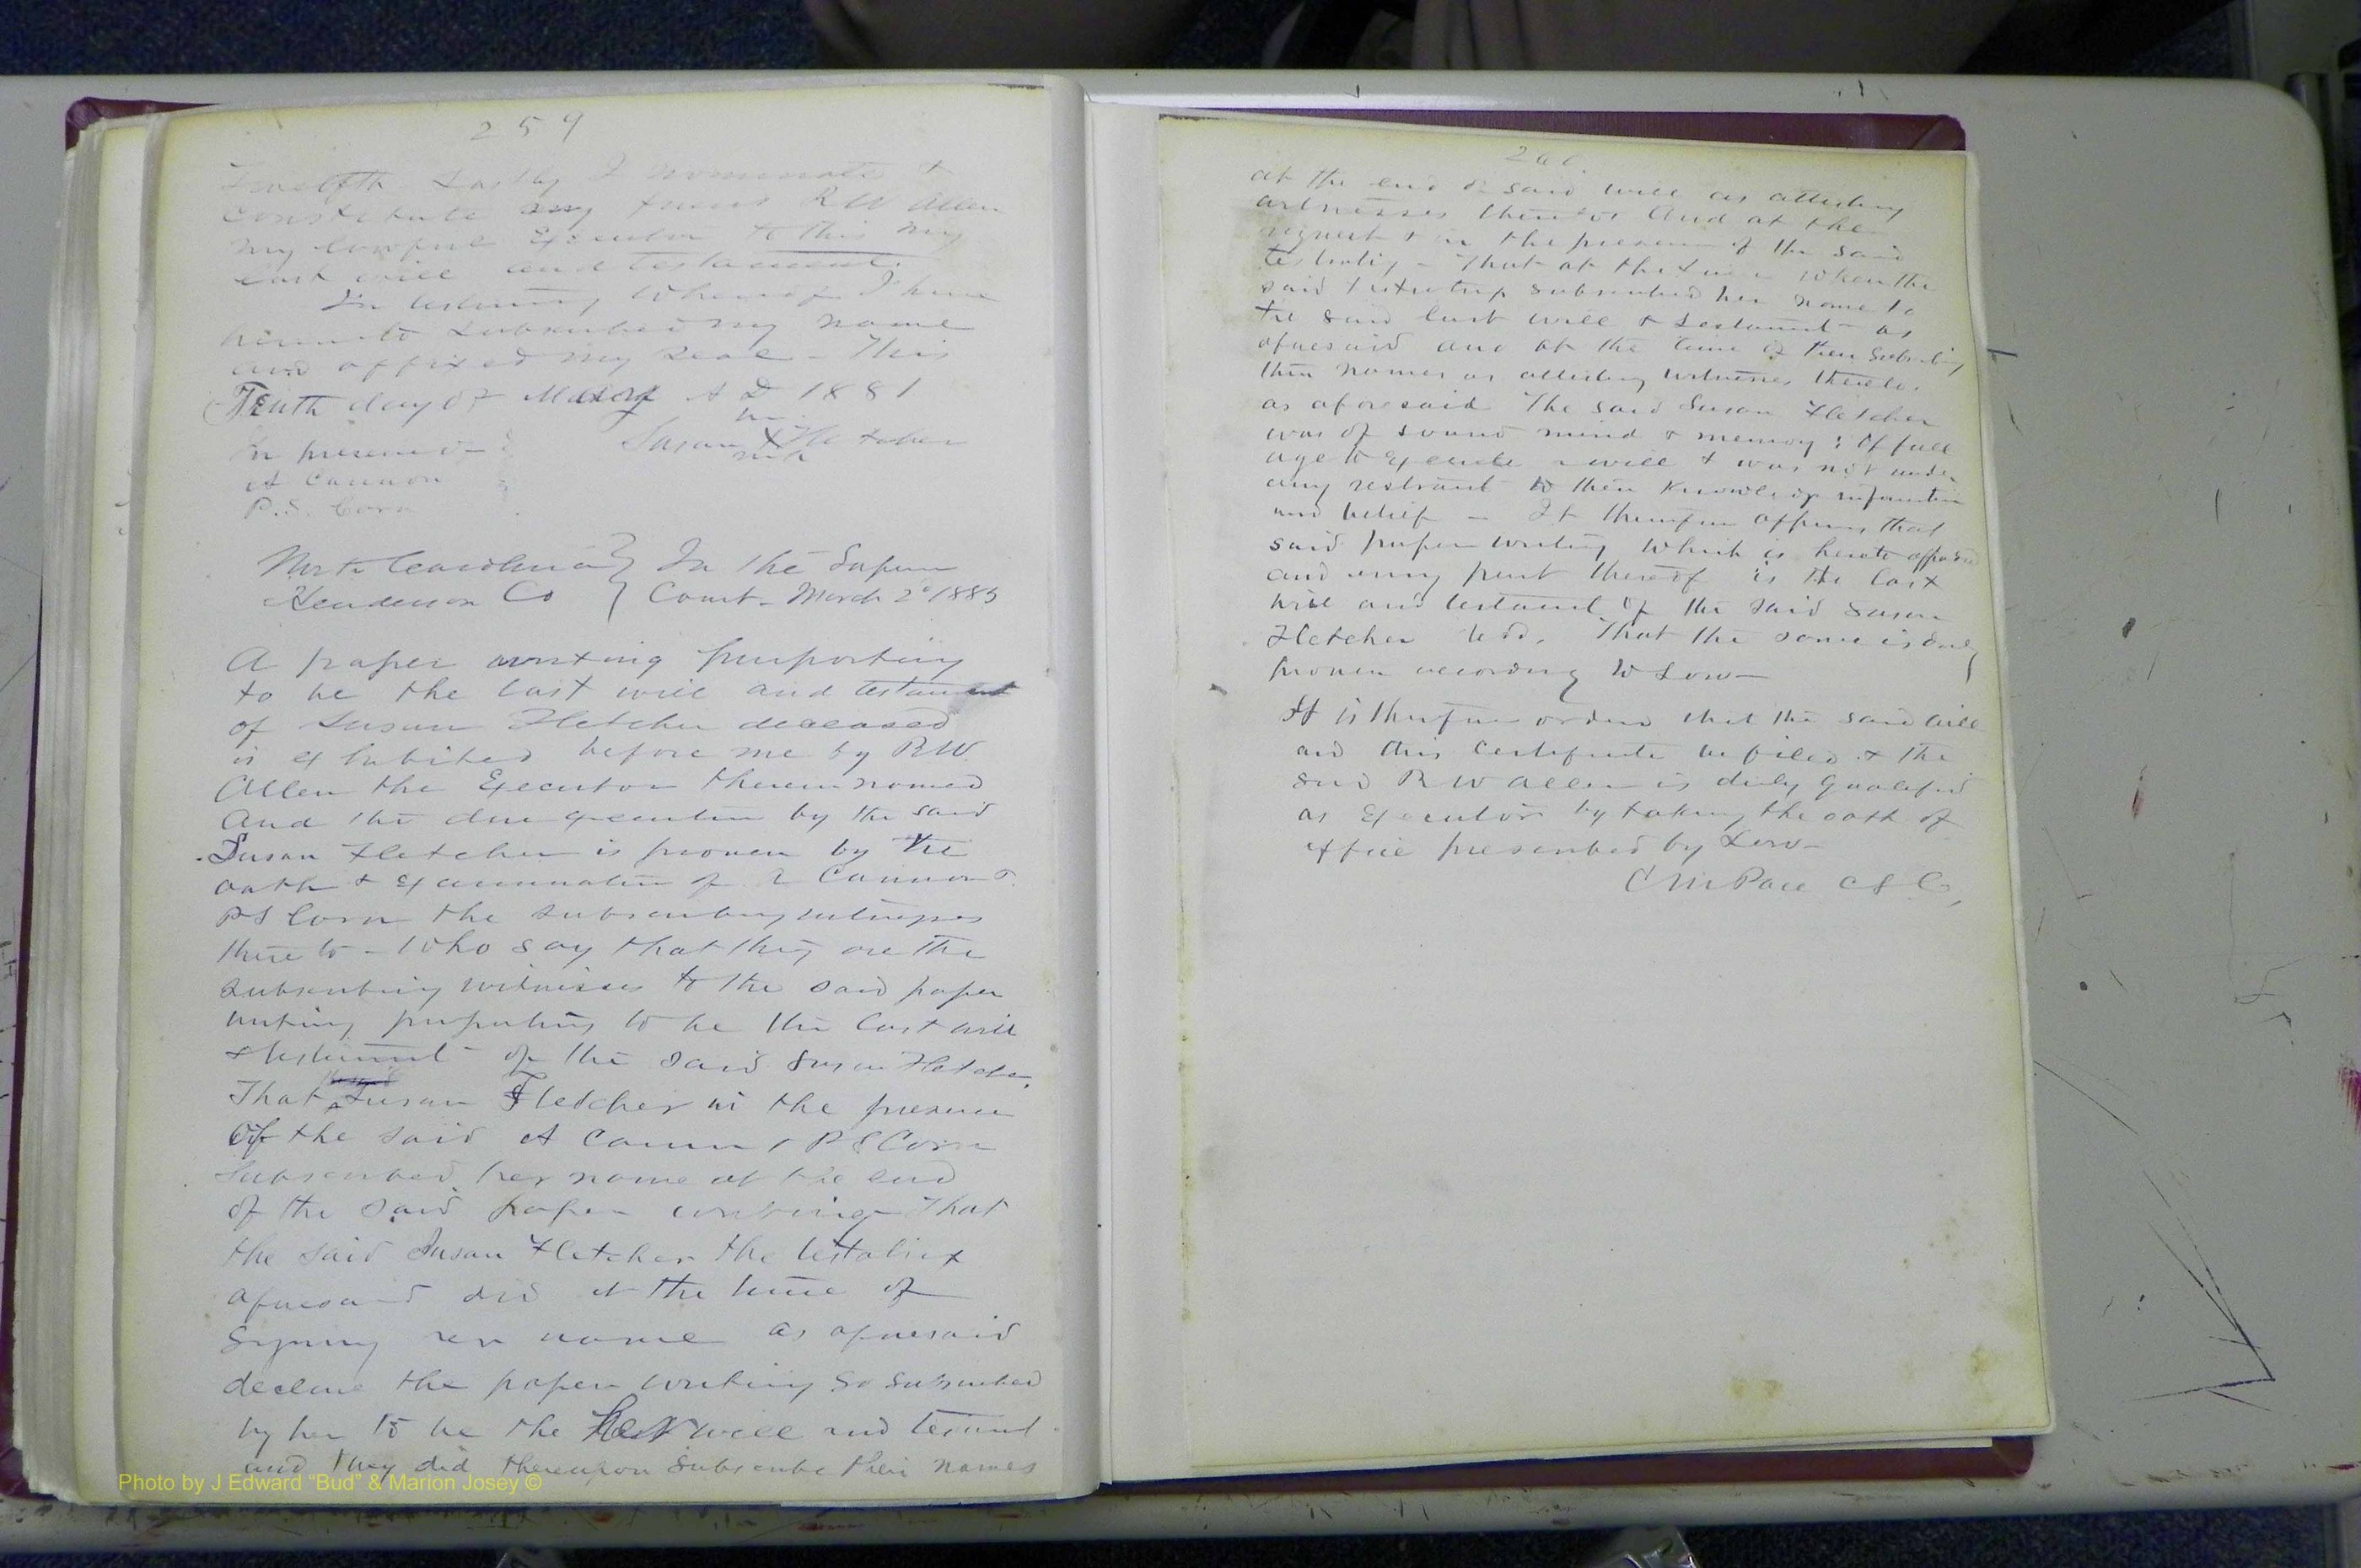 259
Twelfth. Lastly I nominate &
constitute my friend R W Allen
my lawful Executor to this my
last will and testament.
In testimony Whereof I have
hereunto subscribed my name
and affixed my seal - This
Tenth day of May A D 1881
her
Susan X Fletcher
mark
In presence of
A Cannon
P.S. Corn
North Carolina } In the Superior
Henderson Co } Court - March 2d 1883
A paper writing purporting
to be the last will and testament
of Susan Fletcher deceased
is exhibited before me by R W.
Allen the Executor therein named
And the due execution by the said
Susan Fletcher is proven by the
oath & Examination of A Cannon &
P S Corn the subscribing witnesses
there to - Who say that they are the
subscribing witnesses to the said paper
writing purporting to be the last will
& testament of the said Susan Fletcher,
That Susan Fletcher in the presence
Of the said A Cannon & P S Corn
Subscribed her name at the end
of the said paper writing - That
the said Susan Fletcher the testatrix
aforesaid did at the time of
signing her name as aforesaid
declare the paper writing so subscribed
by her to be the her will and testamt
and they did thereupon subscribe their names
260
at the end of said will as attesting
witnesses thereto And at the
request & in the presence of the said
testatrix - That at the time when the
said testatrix subscribed her name to
the said last will & testament as
aforesaid and at the time of their subscribing
their names as attesting witnesses thereto
as aforesaid The said Susan Fletcher
was of sound mind & memory; Of full
age to Execute a will & was not under
any restraint to their knowledge information
and belief - It therefore appears that
said paper writing which is hereto
and every part thereof is the last
will and testament of the said Susan
Fletcher decd. That the same is duly
proven according to Law -
It is therefore orderd that the said will
and this Certificate be filed & the
said R W Allen is duly qualified
as Executor by taking the oath of
office prescribed by Law -
C M Pace C S C,
Photo by J Edward "Bud" & Marion Josey ©